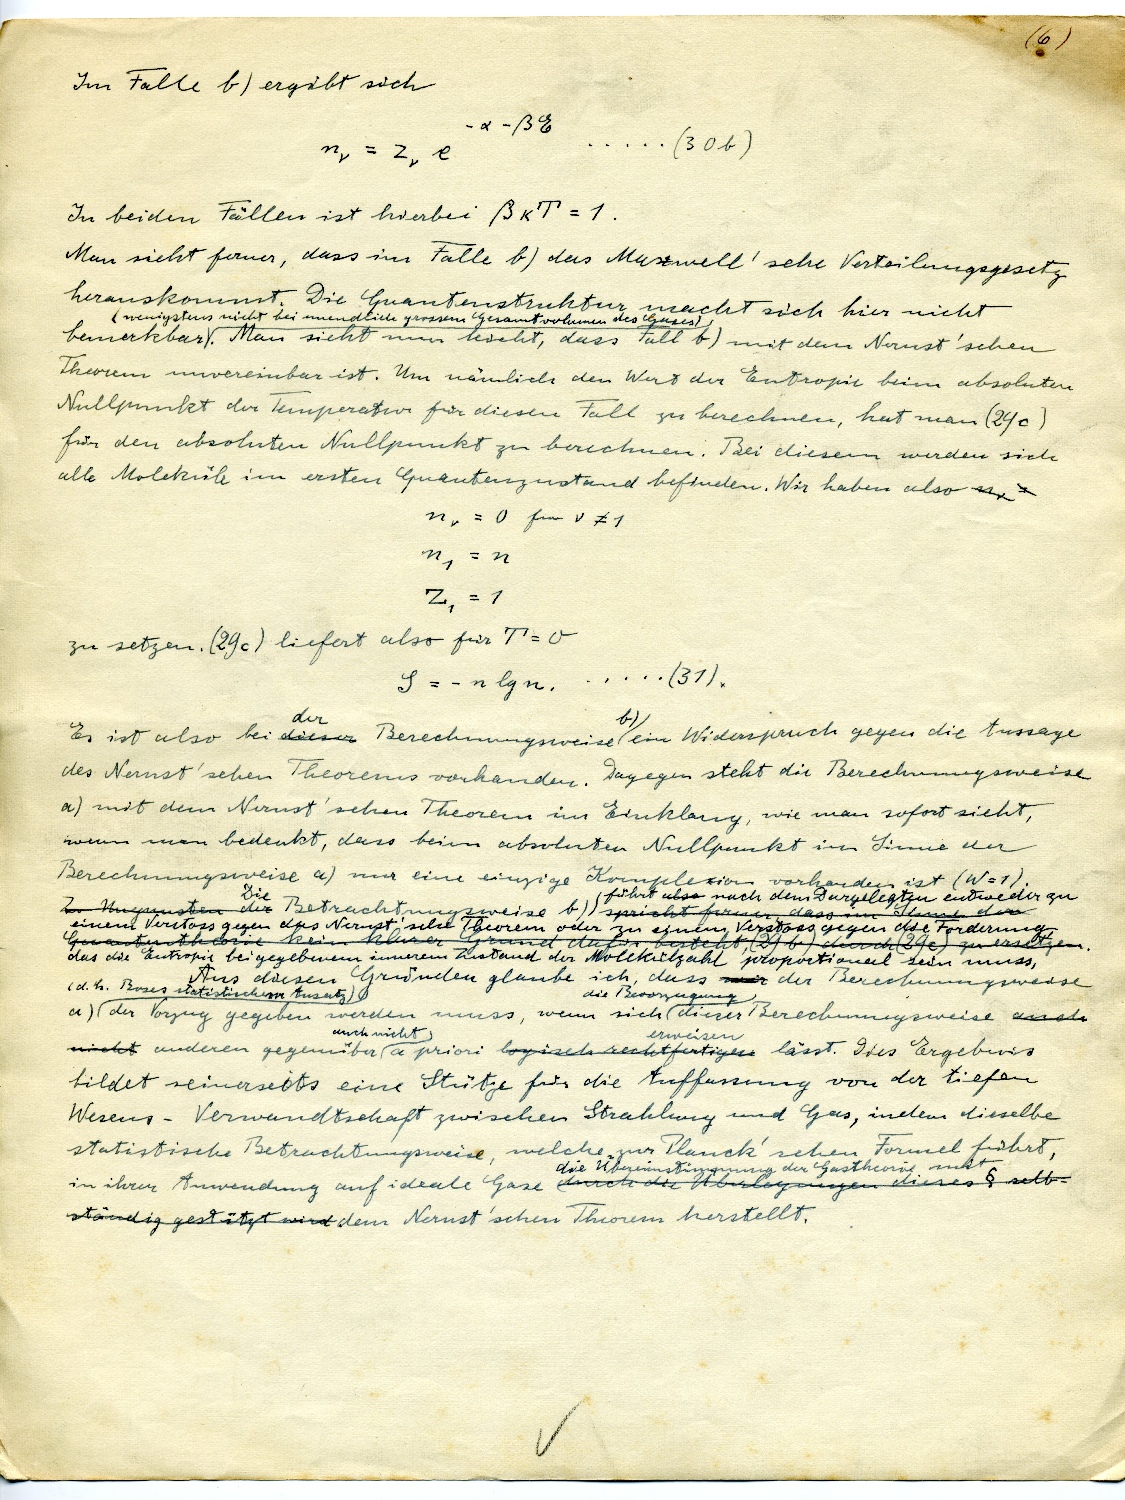 (6)
Im Falle b) ergibt sich
n_ν = z_ν e^{-α-βE} .....(30b)
In beiden Fällen ist hierbei βκT = 1.
Man sieht ferner, dass im Falle b) das Maxwell'sche Verteilungsgesetz
herauskommt. Die Quantenstruktur macht sich hier nicht
(wenigstens nicht bei unendlich grossem Gesamtvolumen des Gases)
bemerkbar. Man sieht nun leicht, dass Fall b) mit dem Nernst'schen
Theorem unvereinbar ist. Um nämlich den Wert der Entropie beim absoluten
Nullpunkt der Temperatur für diesen Fall zu berechnen, hat man (29c)
für den absoluten Nullpunkt zu berechnen. Bei diesem werden sich
alle Moleküle im ersten Quantenzustand befinden. Wir haben also n_ν =
n_ν = 0 für ν ≠ 1
n_1 = n
Z_1 = 1
zu setzen. (29c) liefert also für T = 0
S = - n lg n. .....(31).
der b)
Es ist also bei dieser Berechnungsweise ein Widerspruch gegen die Aussage
des Nernst'schen Theorems vorhanden. Dagegen steht die Berechnungsweise
a) mit dem Nernst'schen Theorem im Einklang, wie man sofort sieht,
wenn man bedenkt, dass beim absoluten Nullpunkt im Sinne der
Berechnungsweise a) nur eine einzige Komplexion vorhanden ist (W=1).
Die führt also nach dem Dargelegten entweder zu
Zu Ungunsten der Betrachtungsweise b) spricht ferner, dass im Sinne der
einem Verstoss gegen das Nernst'sche Theorem oder zu einem Verstoss gegen die Forderung,
Quantentheorie kein klarer Grund dafür besteht, (29b) durch (29c) zu ersetzen.
das die Entropie bei gegebenem innerem Zustand der Molekülzahl proportional sein muss,
Aus diesen Gründen glaube ich, dass nur der Berechnungsweise
(d. h. Boses statistischem Ansatz) die Bevorzugung
a) der Vorzug gegeben werden muss, wenn sich dieser Berechnungsweise auch
auch nicht erweisen
nicht anderen gegenüber a priori logisch rechtfertigen lässt. Dies Ergebnis
bildet seinerseits eine Stütze für die Auffassung von der tiefen
Wesens-Verwandtschaft zwischen Strahlung und Gas, indem dieselbe
statistische Betrachtungsweise, welche zur Planck'schen Formel führt,
die Übereinstimmung der Gastheorie mit
in ihrer Anwendung auf ideale Gase durch die Überlegungen dieses § selb-
ständig gestützt wird dem Nernst'schen Theorem herstellt.